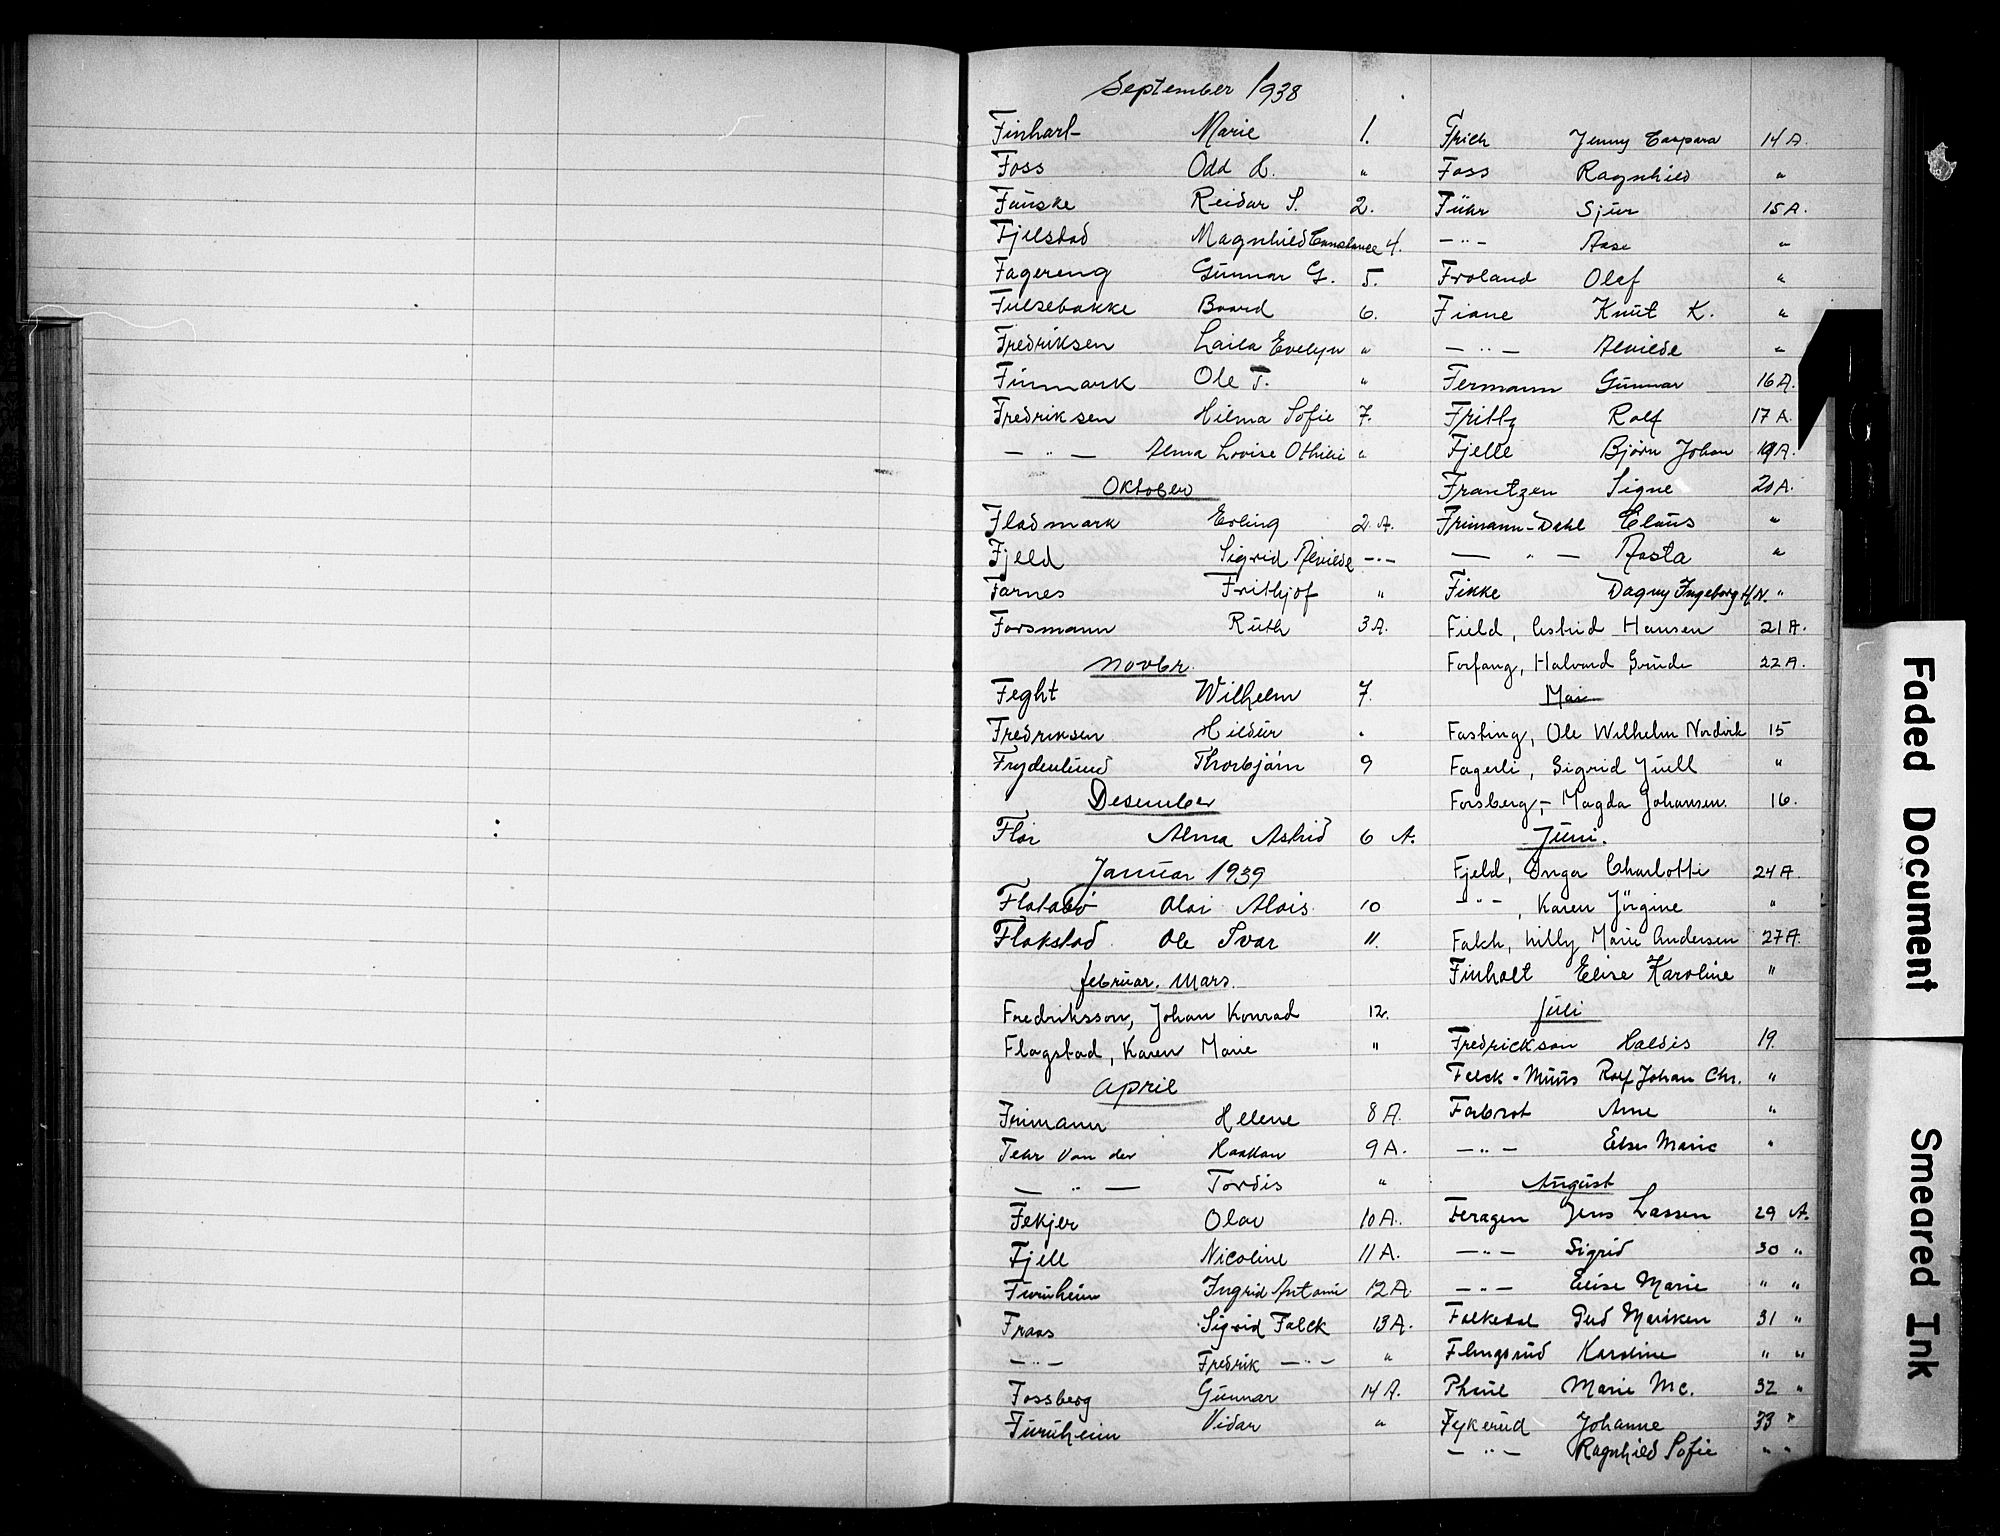 September 1938
Finhart Marie 1.
Foss Odd L. "
Fauske Reidar S. 2.
Fjelstad Magnhild Constance 4.
Fagereng Gunnar G. 5.
Fulsebakke Baard 6.
Fredriksen Laila Evelyn "
Finmark Ole T. "
Fredriksen Hilma Sofie 7.
— " — Alma Lovise Othilie "
Oktober
Fladmark Erling 2 A.
Fjeld Sigrid Alvilde -"-
Farnes Frithjof "
Forsmann Ruth 3 A.
Novbr.
Feght Wilhelm 7.
Fredriksen Hildur "
Frydenlund Thorbjørn 9
Desember
Flor Alma Astrid 6 A.
Januar 1939
Flatabø Olai Alois 10
Flakstad Ole Ivar 11.
februar. Mars.
Fredriksson, Johan Konrad 12.
Flagstad, Karen Marie "
April
Frimann Helene 8 A.
Fehr von der Haakon 9 A.
— " — Tordis "
Fekjer Olav 10 A.
Fjell Nicoline 11 A.
Furuheim Ingrid Antonie 12 A.
Fraas Sigrid Falck 13 A.
— " — Fredrik — " — "
Fossberg Gunnar 14 A.
Furuheim Vidar "
Frich Jenny Caspara 14 A.
Foss Ragnhild "
Führ Sjur 15 A.
— " — Aase "
Froland Olef "
Fiane Knut K. "
— " — Alvilde "
Fermann Gunnar 16 A.
Fritty Rolf 17 A.
Fjelle Bjørn Johan 19 A.
Frantzen Signe 20 A.
Frimann-Dahl Claus "
— " — Aasta "
Fikke Dagny Ingeborg H.N. "
Field, Astrid Hansen 21 A.
Forfang, Halvard Grude 22 A.
Mai
Fasting, Ole Wilhelm Nordvik 15
Fagerli, Sigrid Juell "
Forsberg,- Magda Johansen. 16.
Juni.
Fjeld, Inga Charlotte 24 A.
— " — , Karen Jörgine "
Falch, Milly Marie Andersen 27 A.
Finholt Elise Karoline "
Juli
Fredrickson Haldis 19.
Falck-Muus Rolf Johan Chr. "
Farbrot Arne "
— " — Else Marie "
August
Feragen Jens Lassen 29 A.
— " — Sigrid 30 "
— " — Elise Marie " "
Falkedal Gud Mariken 31 "
Flingsrud Karoline " "
Pheil Marie Mc. 32 "
Fykerud Johanne 33 "
— " — Ragnhild Sofie " "
Faded Document
Smeared Ink